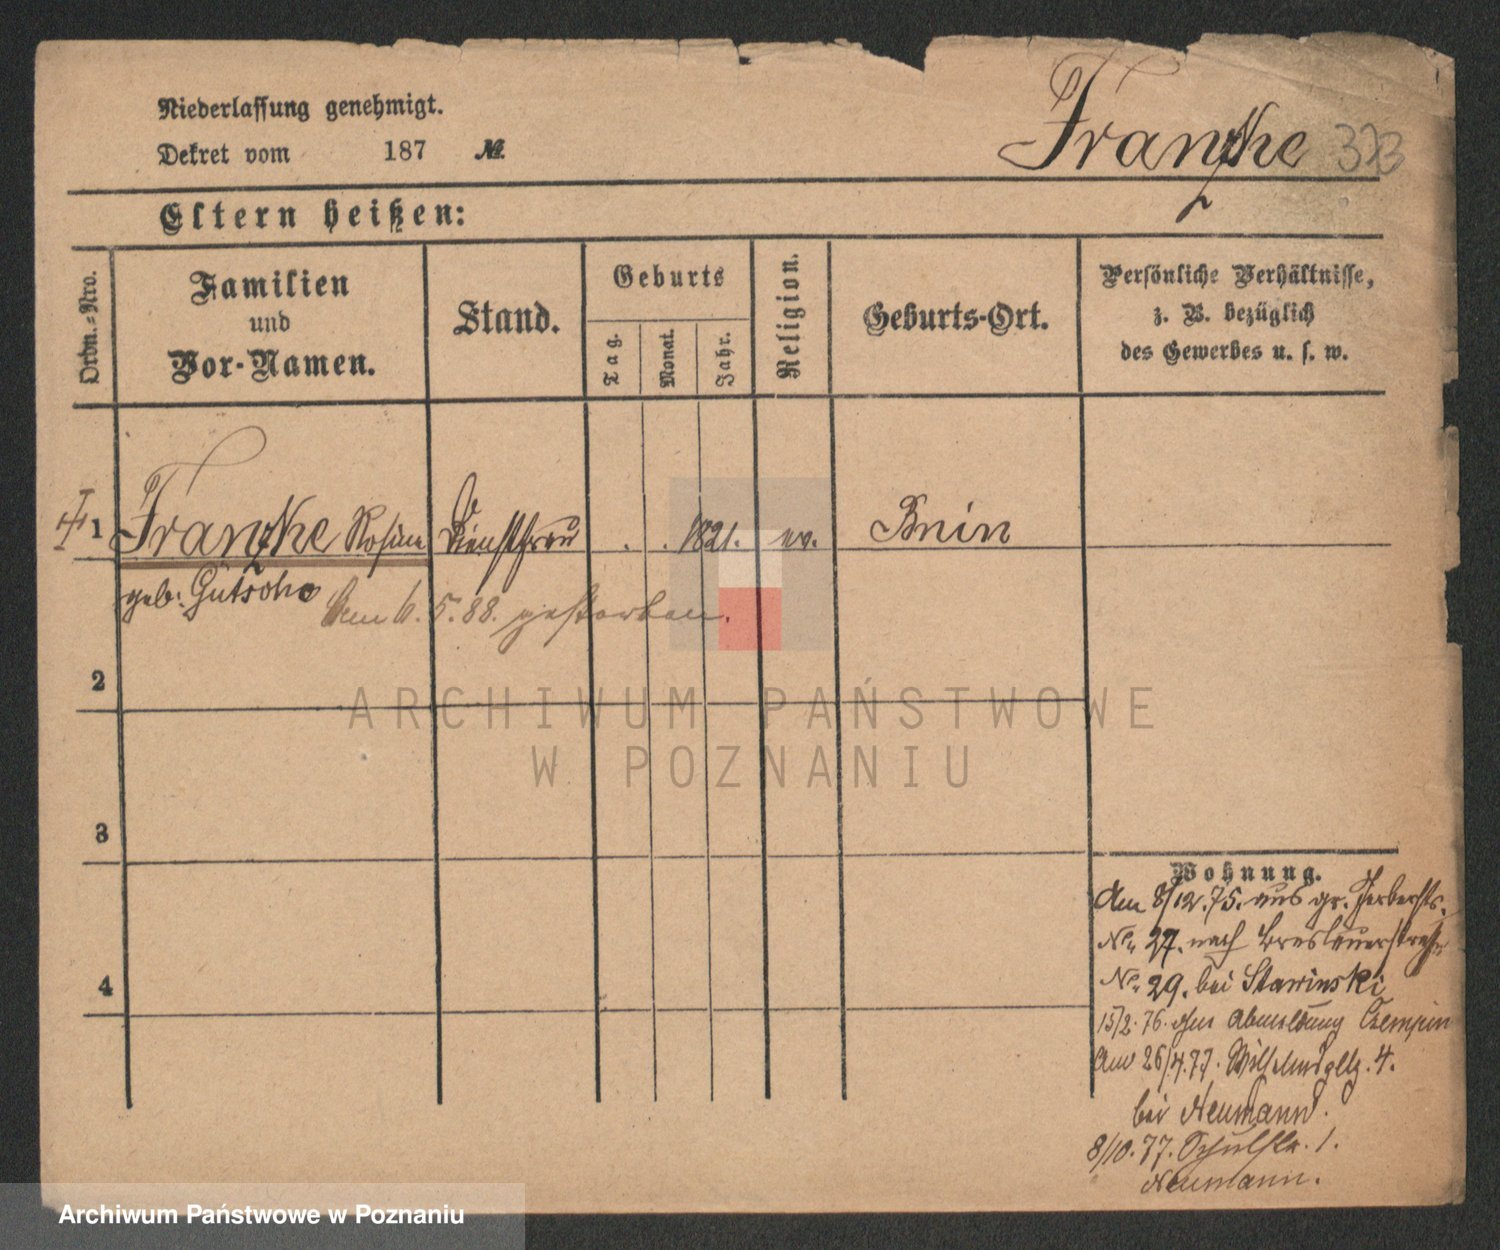 Niederlassung genehmigt.
Dekret vom 187 №
Franzke 373
Eltern heißen:
Ordn.-Nro.
Familien
und
Vor-Namen.
Stand.
Geburts
Tag.
Monat.
Jahr.
Religion.
Geburts-Ort.
Persönliche Verhältnisse,
z. B. bezüglich
des Gewerbes u. s. w.
1 Franzke Rosina Dienstfrau . . 1821. ev. Bnin
geb: Gutsche
Am 6. 5. 88. gestorben.
2
ARCHIWUM PAŃSTWOWE
W POZNANIU
3
4
Wohnung.
Am 8/12.75. aus gr. Gerberstr.
No. 27. nach Breslauerstraße
No. 29. bei Stawinski
15/2.76. ohne Abmeldung Czempin
Am 26/4.77. Wilhelmsplz. 4.
bei Neumann.
8/10.77. Schulstr. 1.
Neumann.
Archiwum Państwowe w Poznaniu